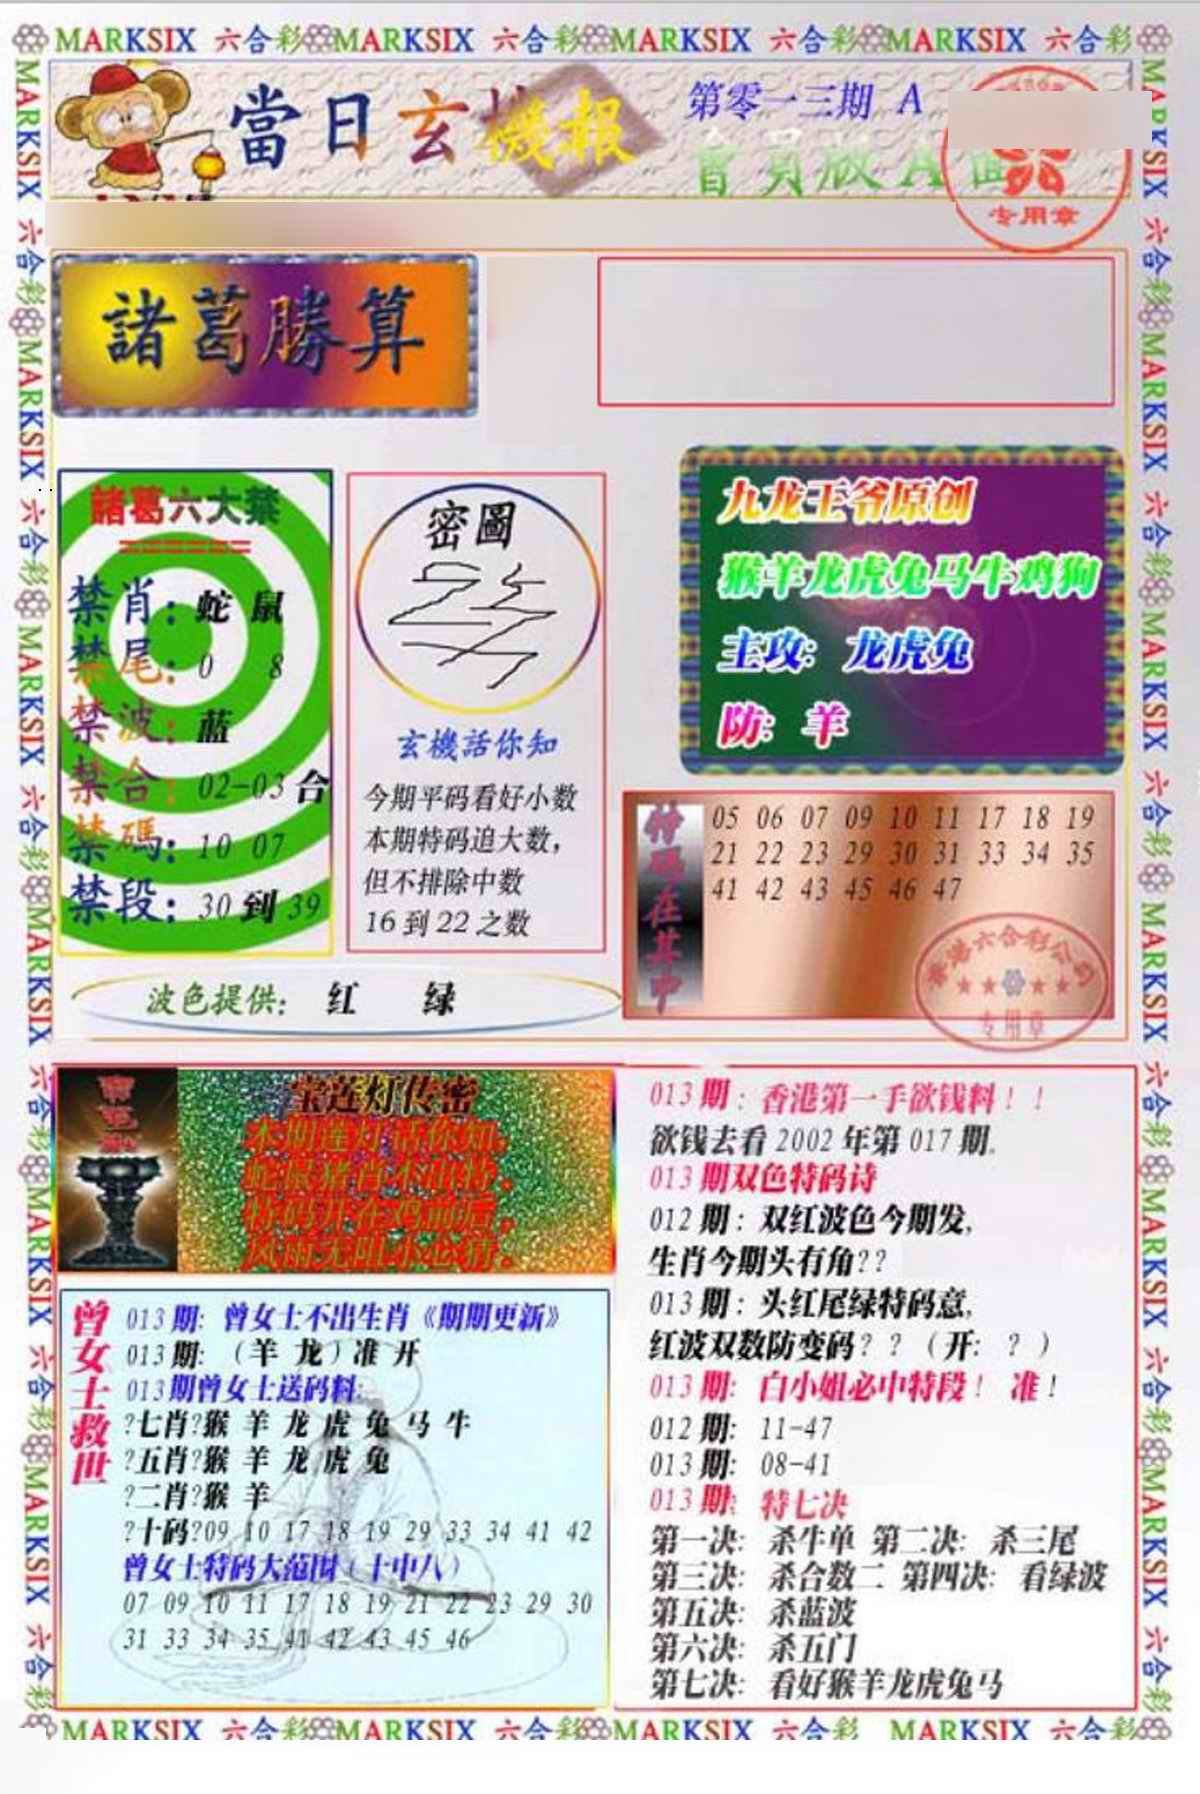 MARKSIX 六合彩 MARKSIX 六合彩 MARKSIX 六合彩 MARKSIX 六合彩
當日玄機報
第零一三期 A
會員版A面
专用章
諸葛勝算
諸葛六大禁
禁肖：蛇 鼠
禁尾：0 8
禁波：蓝
禁合：02-03合
禁碼：10 07
禁段：30到39
密圖
玄機話你知
今期平码看好小数
本期特码追大数，
但不排除中数
16到22之数
九龙王爷原创
猴羊龙虎兔马牛鸡狗
主攻：龙虎兔
防：羊
特码在其中
05 06 07 09 10 11 17 18 19
21 22 23 29 30 31 33 34 35
41 42 43 45 46 47
香港六合彩公司
专用章
波色提供： 红 绿
宝莲灯传密
本期莲灯话你知，
蛇鼠猪肖不出特。
特码开在鸡前后，
曾女士救世
013期：曾女士不出生肖《期期更新》
013期：（羊 龙）准 开
013期曾女士送码料:
?七肖?猴 羊 龙 虎 兔 马 牛
?五肖?猴 羊 龙 虎 兔
?二肖?猴 羊
?十码?09 10 17 18 19 29 33 34 41 42
曾女士特码大范围（十中八）
07 09 10 11 17 18 19 21 22 23 29 30
31 33 34 35 41 42 43 45 46
013期：香港第一手欲钱料！！
欲钱去看2002年第017期.
013期双色特码诗
012期：双红波色今期发,
生肖今期头有角??
013期：头红尾绿特码意,
红波双数防变码？？（开: ？）
013期: 白小姐必中特段！ 准！
012期: 11-47
013期: 08-41
013期: 特七决
第一决: 杀牛单 第二决: 杀三尾
第三决: 杀合数二 第四决: 看绿波
第五决: 杀蓝波
第六决: 杀五门
第七决: 看好猴羊龙虎兔马
MARKSIX 六合彩 MARKSIX 六合彩 MARKSIX 六合彩 MARKSIX 六合彩